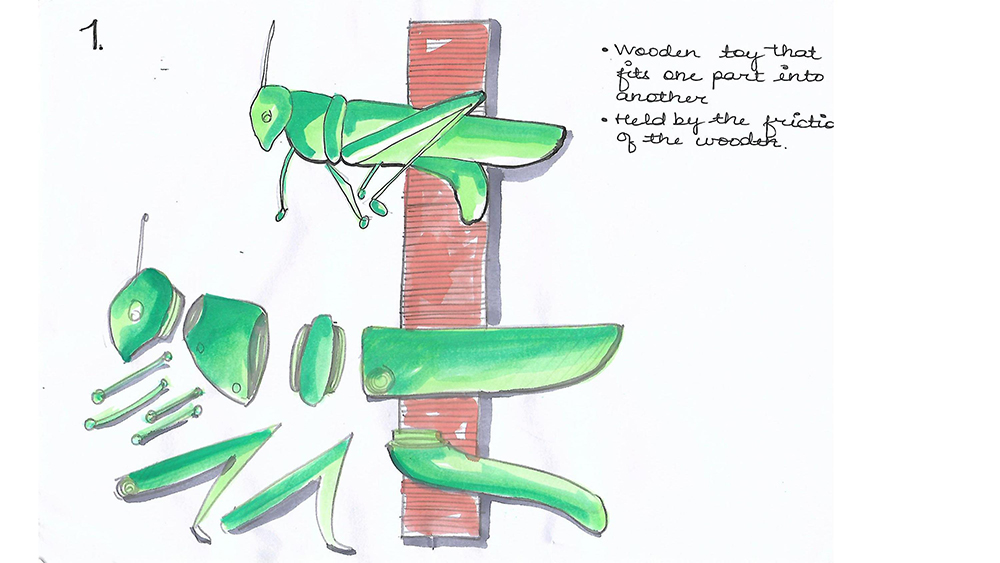 1.
• Wooden toy that
fits one part into
another
• Held by the frictio
of the wooden.